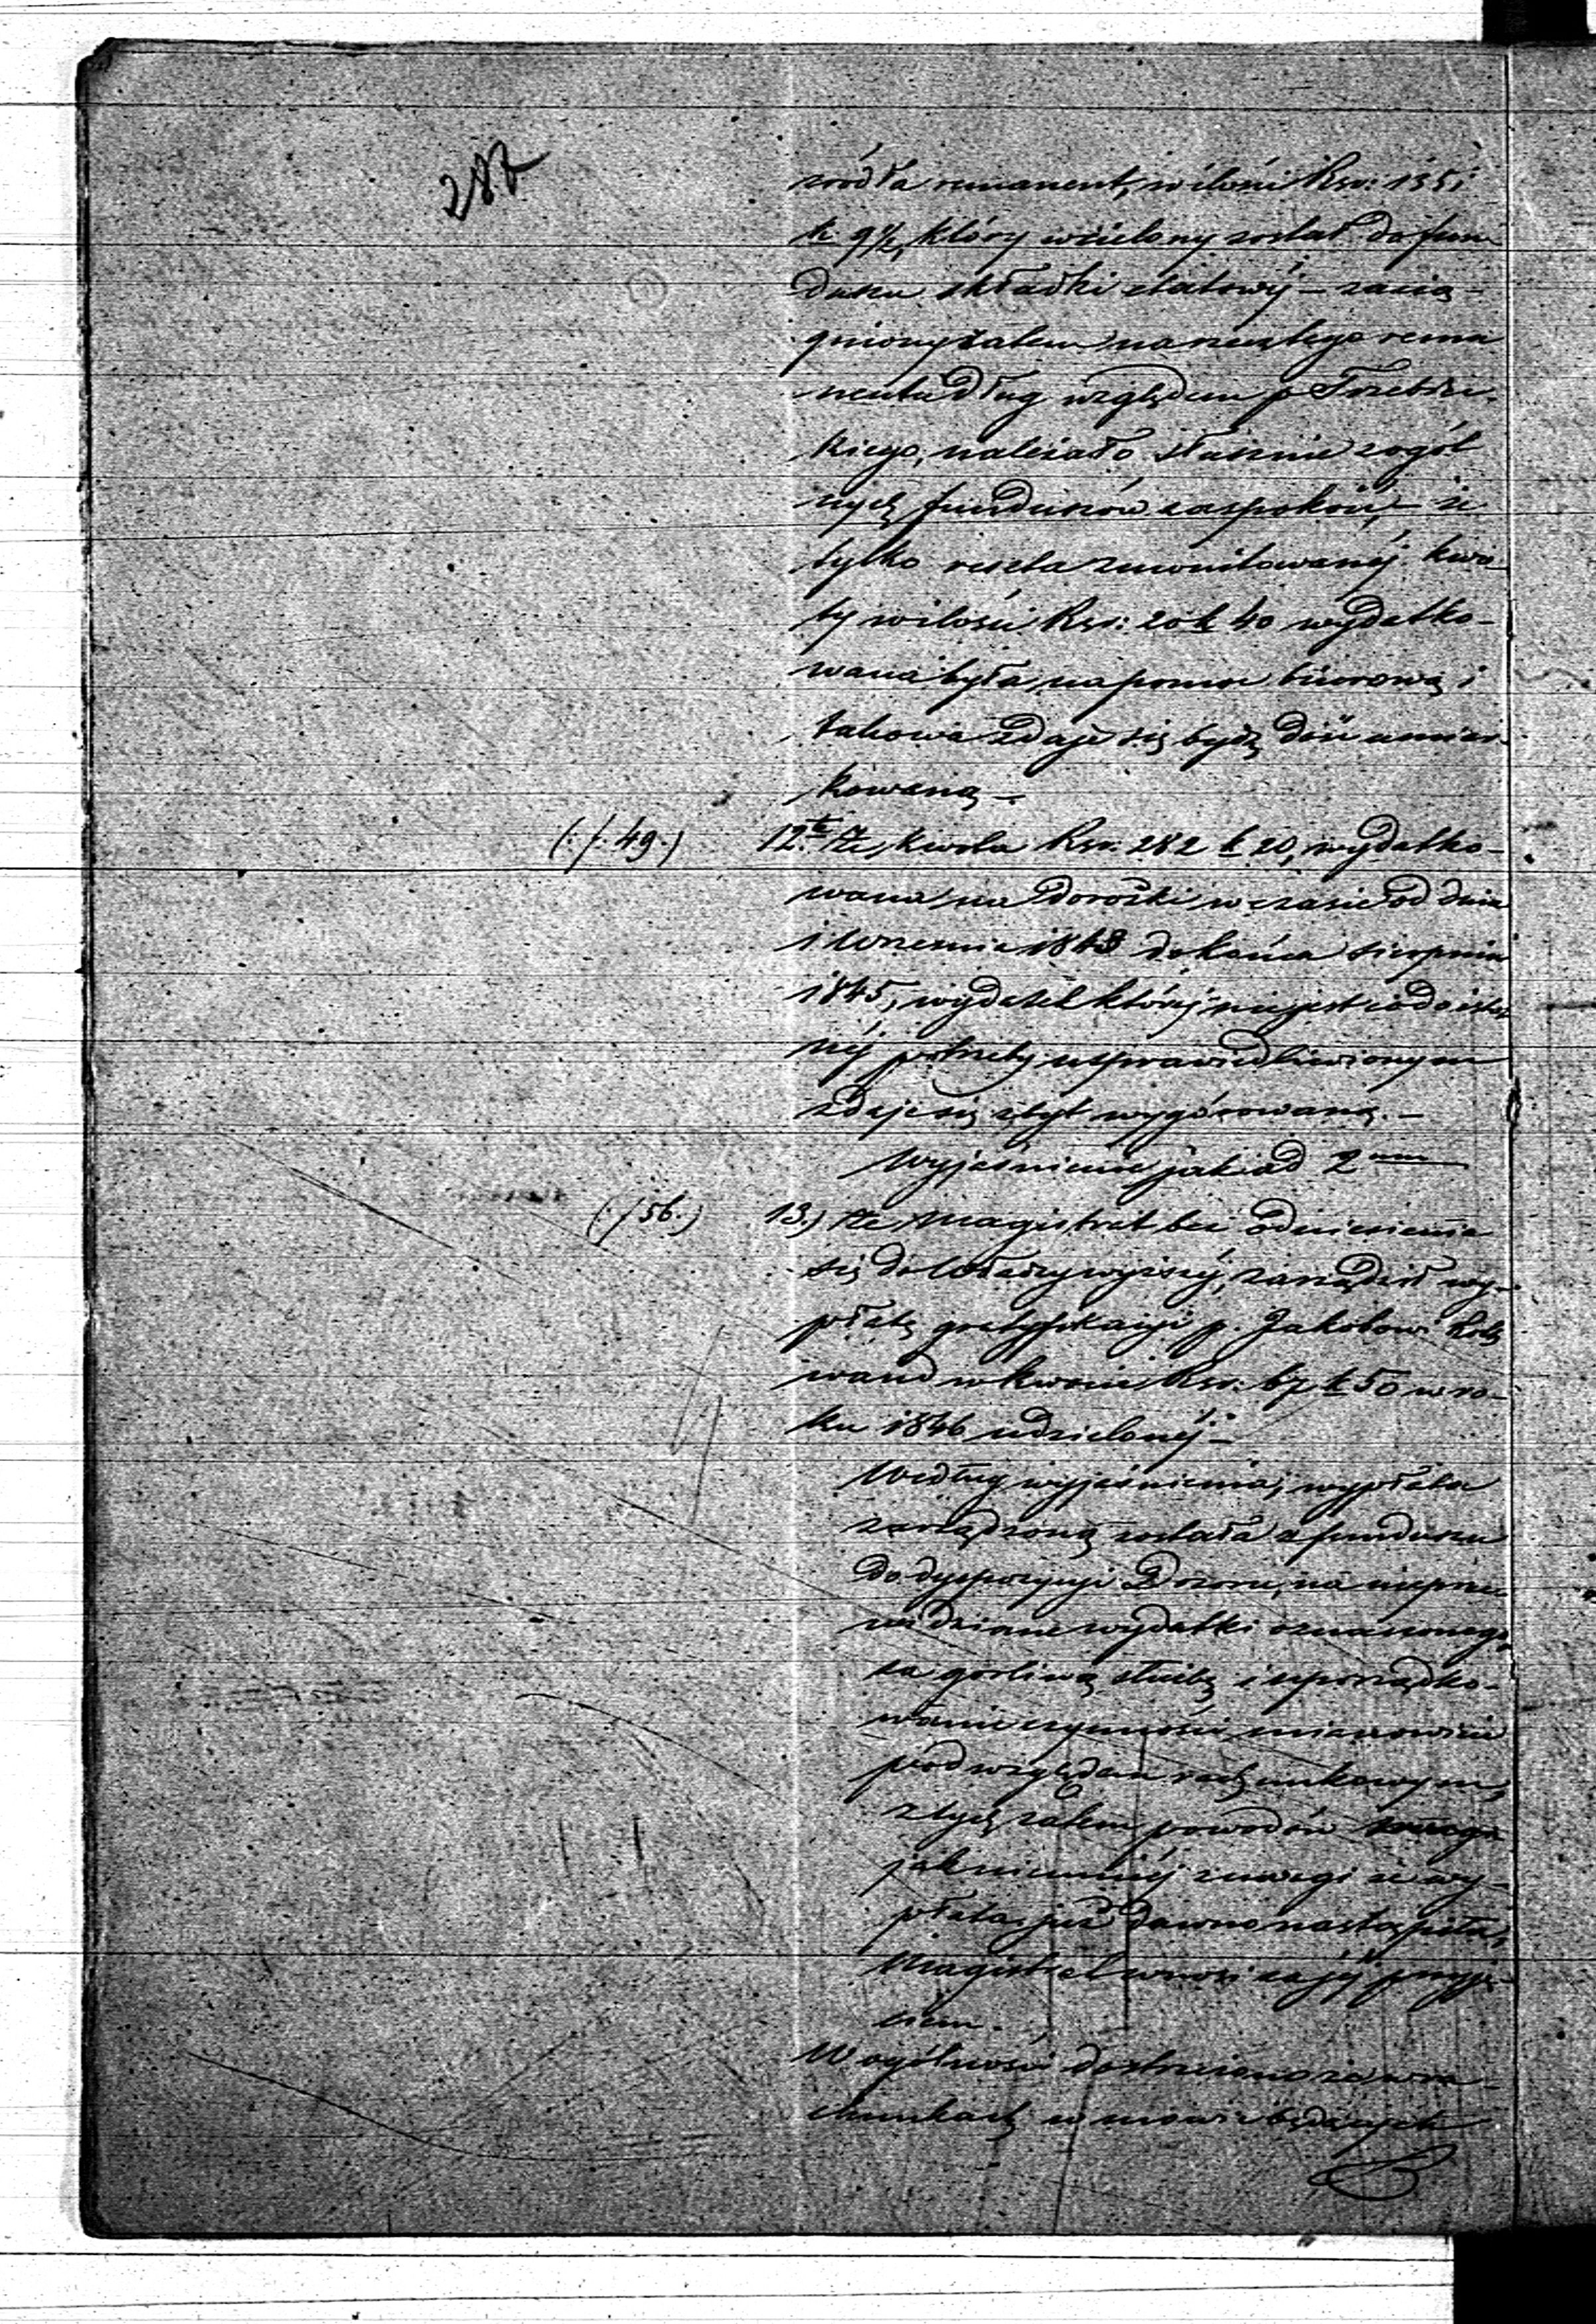 287
źródła remanent, w ilości Rsr: 135 i
k 9½, który wcielony został do fun
duszu składki etatowéj – zacią-
gniony zatem na rzecz tego rema
nentu dług względem p
kiego, należało słusznie z ogól
nych funduszów zaspokoić, – że
tylko reszta zakwitowanéj kwo-
ty w ilości Rsr: 20 k 40 wydatko-
wana była na pomoc biurową i
takowa zdaje się bydź dość umiar
kowaną –
(:/: 49.) 12te że kwota Rsr. 282 k 20, wydatko-
wana na dorożki w czasie od dnia
1 Września 1843 do końca Sierpnia
1845, wydatek której nie jest co do istot
néj potrzeby usprawiedliwionym
zdaje się zbyt wygórowaną. –
Wyjaśnienie jak ad 2um
(:/56.) 13.) że Magistrat bez odniesienia
się do Władzy wyższéj, zarządził wy-
płatę gratyfikacyi p. Jakobowi
wand w kwocie Rsr: 67 k 50 w ro-
ku 1846 udzielonéj –
Według wyjaśnienia, wypłata
zarządzoną została z funduszu
do dyspozycyi Dozoru, na nieprze-
widziane wydatki oznaczonego,
za gorliwą służbę i uporządko-
wanie czynności, mianowicie
pod względem rachunkowym,
z tych zatem powodów
jak niemniéj z uwagi że wy-
płata już dawno nastąpiła,
Magistrat wnosi za jéj przyję-
ciem. –
W ogólności dostrzeżono że w ra-
chunkach w mowie będących